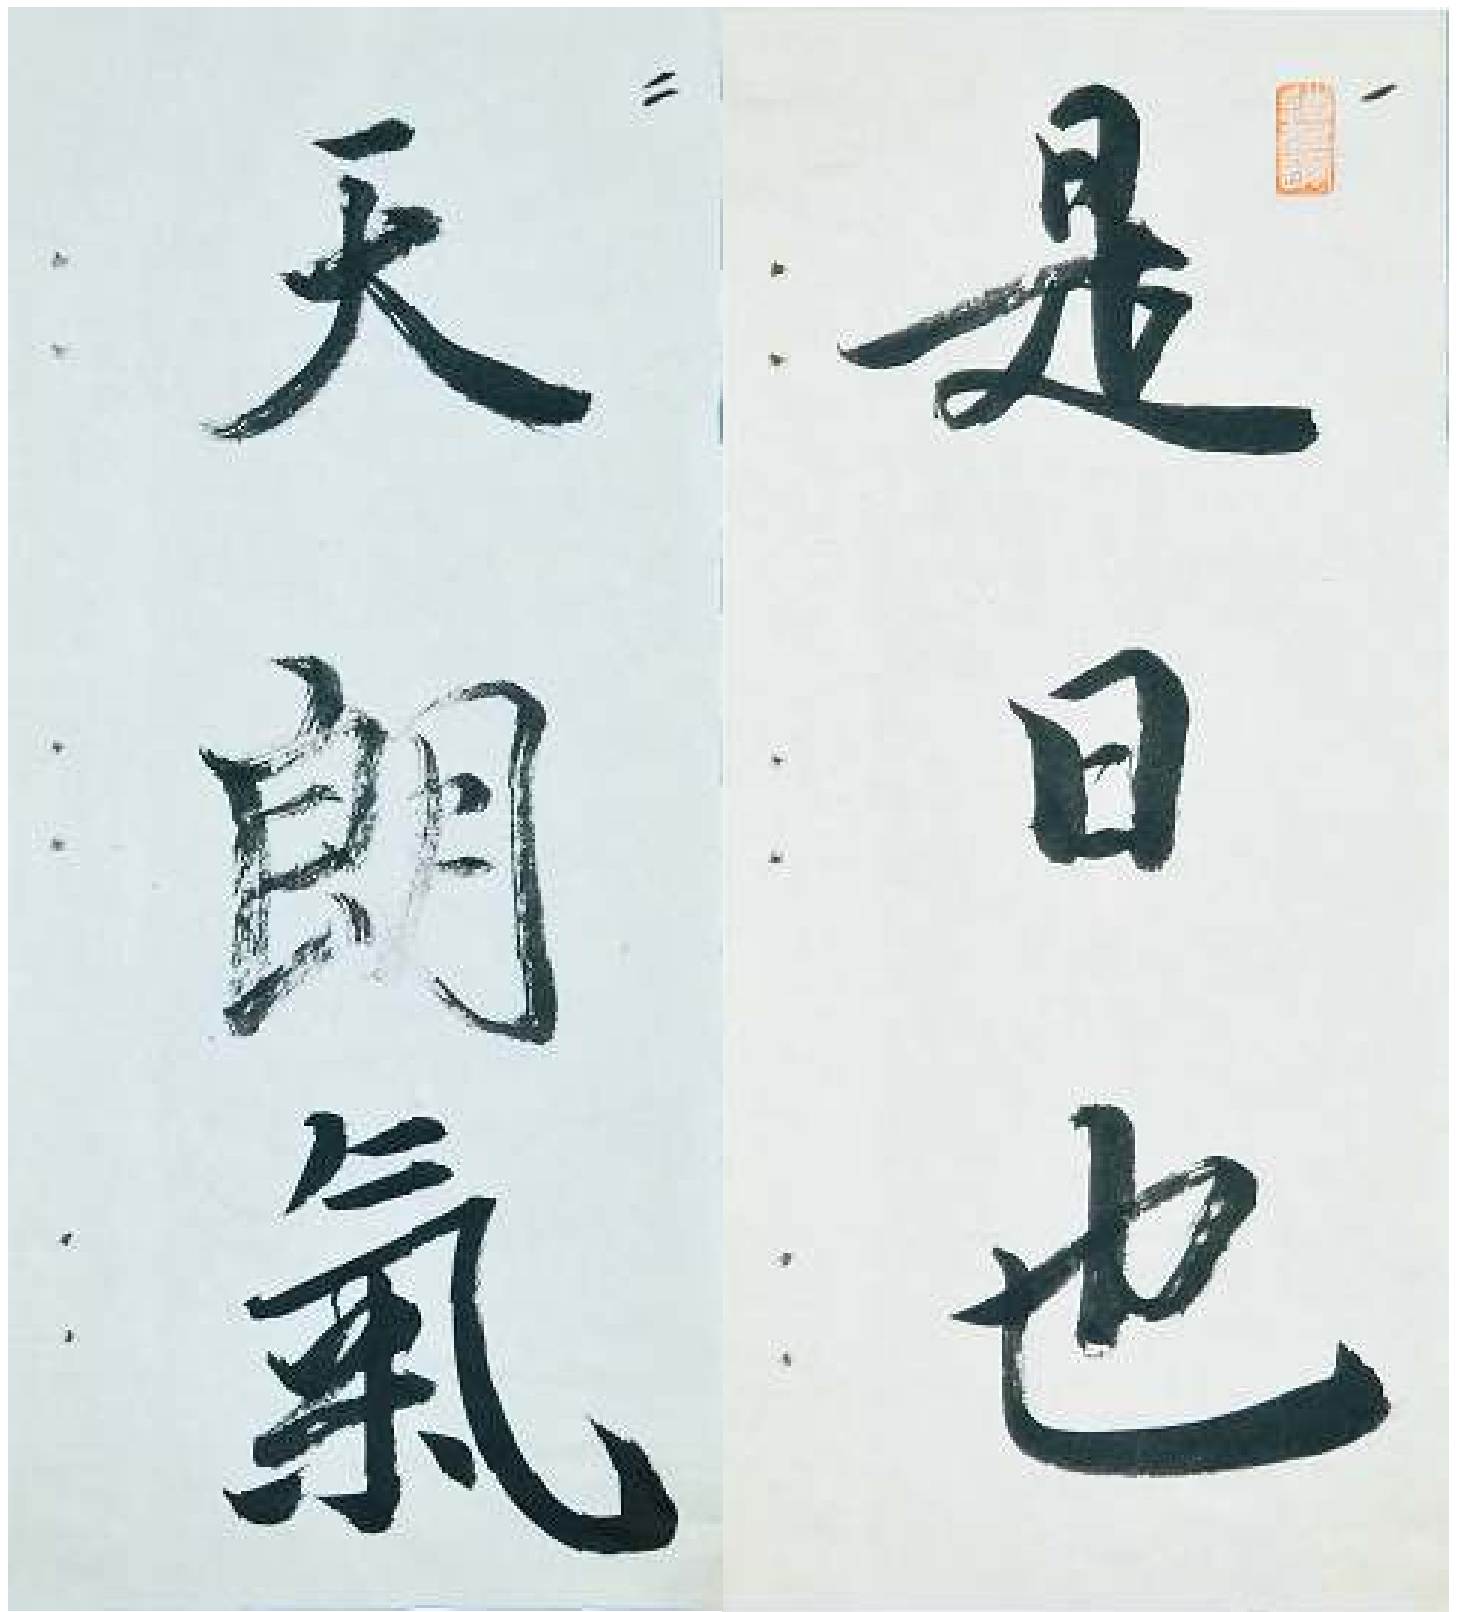 一
是日也
二
天朗氣